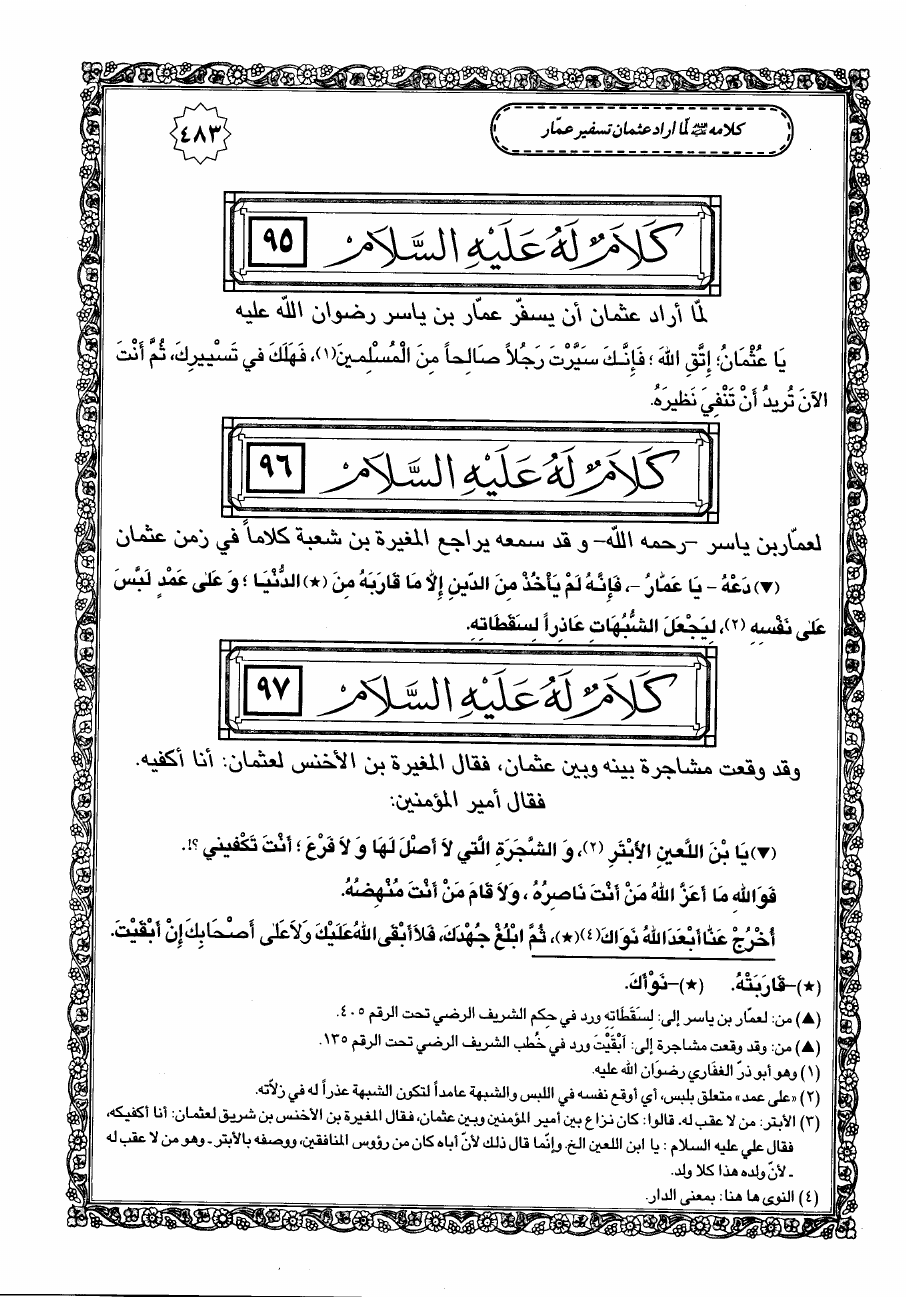 كلامه ﷺ لمّا أراد عثمان تسفير عمّار
٤٨٣
كَلاَمٌ لَهُ عَلَيْهِ السَّلاَمُ ٩٥
لمّا أراد عثمان أن يسفّر عمّار بن ياسر رضوان اللّه عليه
يَا عُثْمَانُ؛ إِتَّقِ اللهَ ؛ فَإِنَّكَ سَيَّرْتَ رَجُلاً صَالِحاً مِنَ الْمُسْلِمينَ(١)، فَهَلَكَ في تَسْييرِكَ، ثُمَّ أَنْتَ
الآنَ تُريدُ أَنْ تَنْفِيَ نَظيرَهُ.
كَلاَمٌ لَهُ عَلَيْهِ السَّلاَمُ ٩٦
لعمّاربن ياسر –رحمه اللّه– و قد سمعه يراجع المغيرة بن شعبة كلاماً في زمن عثمان
(▼) دَعْهُ – يَا عَمَّارُ –، فَإِنَّهُ لَمْ يَأْخُذْ مِنَ الدّينِ إِلاَّ مَا قَارَبَهُ مِنَ (★) الدُّنْيَا ؛ وَ عَلى عَمْدٍ لَبَّسَ
عَلى نَفْسِهِ (٢)، لِيَجْعَلَ الشُّبُهَاتِ عَاذِراً لِسَقَطَاتِهِ.
كَلاَمٌ لَهُ عَلَيْهِ السَّلاَمُ ٩٧
وقد وقعت مشاجرة بينه وبين عثمان، فقال المغيرة بن الأخنس لعثمان: أنا أكفيه.
فقال أمير المؤمنين:
(▼) يَا بْنَ اللَّعينِ الأَبْتَرِ (٢)، وَ الشَّجَرَةِ الَّتي لاَ أَصْلَ لَهَا وَ لاَ فَرْعَ ؛ أَنْتَ تَكْفيني ؟!.
فَوَاللهِ مَا أَعَزَّ اللهُ مَنْ أَنْتَ نَاصِرُهُ ، وَلاَ قَامَ مَنْ أَنْتَ مُنْهِضُهُ.
أُخْرُجْ عَنَّا أَبْعَدَ اللهُ نَوَاكَ(٤)(★)، ثُمَّ ابْلُغْ جُهْدَكَ، فَلاَ أَبْقَى اللهُ عَلَيْكَ وَلاَ عَلى أَصْحَابِكَ إِنْ أَبْقَيْتَ.
(★)–قَارَبَتْهُ. (★)–نَوْأَكَ.
(▲) من: لعمّار بن ياسر إلى: لِسَقَطَاتِهِ ورد في حِكم الشريف الرضي تحت الرقم ٤٠٥.
(▲) من: وقد وقعت مشاجرة إلى: أَبْقَيْتَ ورد في خُطب الشريف الرضي تحت الرقم ١٣٥.
(١) وهو أبو ذرّ الغفاري رضوَان الله عليه.
(٢) «على عمد» متعلق بلبس، أي أوقع نفسه في اللبس والشبهة عامداً لتكون الشبهة عذراً له في زلاّته.
(٣) الأبتر: من لا عقب له. قالوا: كان نزاع بين أمير المؤمنين وبين عثمان، فقال المغيرة بن الأخنس بن شريق لعثمان: أنا أكفيكه،
فقال علي عليه السلام : يا ابن اللعين الخ. وإنّما قال ذلك لأنّ أباه كان من رؤوس المنافقين، ووصفه بالأبتر ـ وهو من لا عقب له
ـ لأنّ ولده هذا كلا ولد.
(٤) النوى ها هنا: بمعنى الدار.